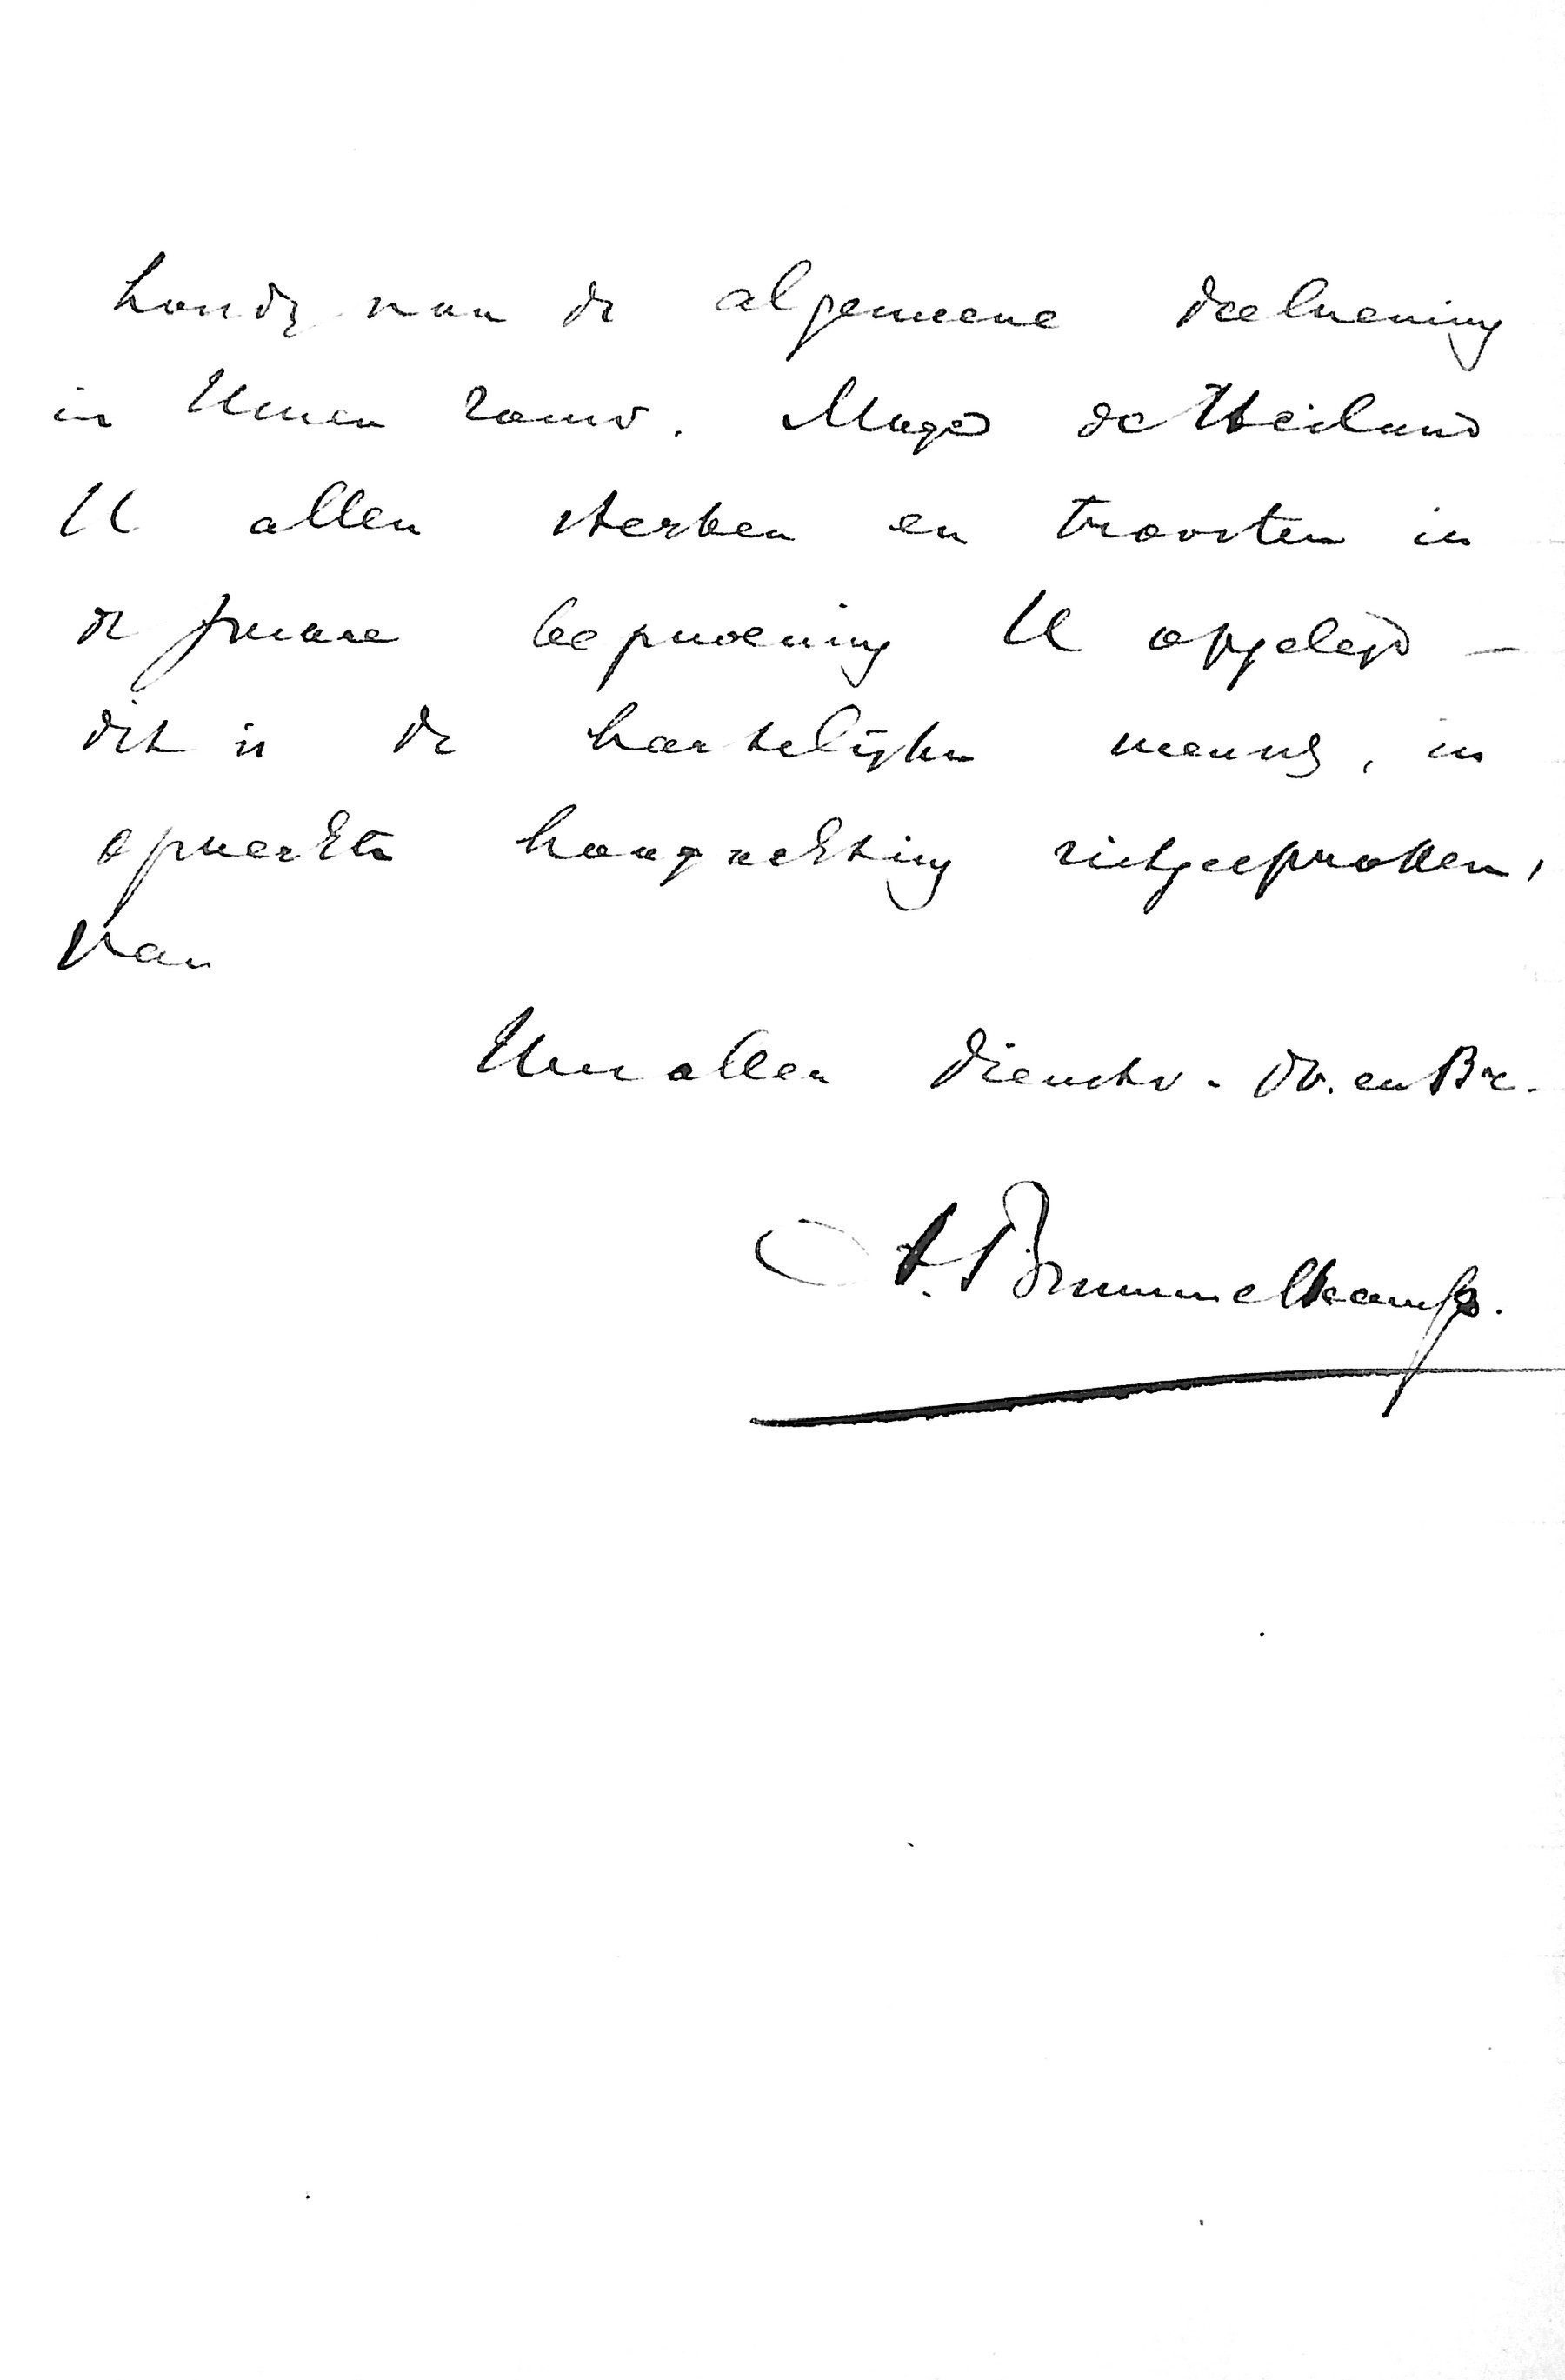 konde van de algemeene deelneming
in Uwen rouw. Moge de Heiland
U allen sterken en troosten in
de zware beproeving U opgelegd —
dit is de hartelijken wensch, in
oprechte hoogachting uitgesproken,
van
Uwer aller dienstv. dr. en Br.
A. Brummelkamp.